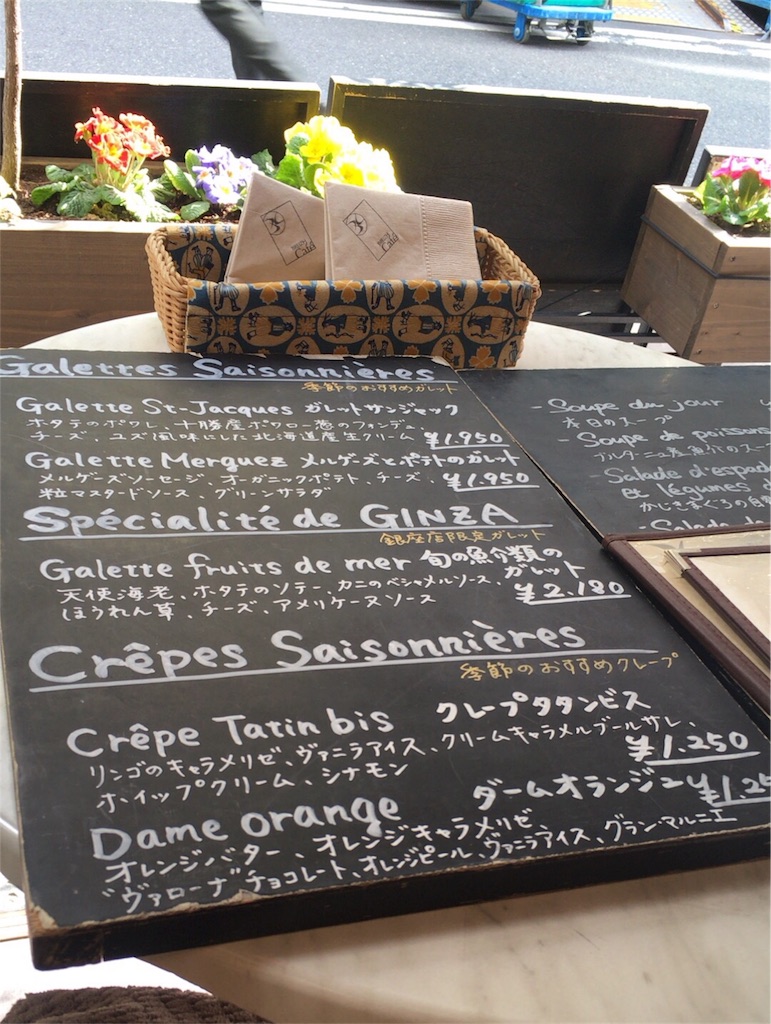 Galettes Saisonnières
季節のおすすめガレット
Galette St-Jacques ガレットサンジャック
ホタテのポワレ、十勝産ポワロー葱のフォンデュ、
チーズ、ユズ風味にした北海道産生クリーム ¥1.950
Galette Merguez メルゲーズとポテトのガレット
メルゲーズソーセージ、オーガニックポテト、チーズ、
粒マスタードソース、グリーンサラダ ¥1.950
Spécialité de GINZA
銀座店限定ガレット
Galette fruits de mer 旬の魚介類の
ガレット
天使海老、ホタテのソテー、カニのベシャメルソース、
ほうれん草、チーズ、アメリケーヌソース ¥2.180
Crêpes Saisonnières
季節のおすすめクレープ
Crêpe Tatin bis クレープタタンビス
リンゴのキャラメリゼ、ヴァニラアイス、クリームキャラメルブールサレ、
ホイップクリーム、シナモン ¥1.250
Dame orange ダームオランジュ
オレンジバター、オレンジキャラメリゼ
"ヴァローナ"チョコレート、オレンジピール、ヴァニラアイス、グラン・マルニエ
- Soupe du jour
本日のスープ
- Soupe de poissons
ブルターニュ
- Salade d'espad
et légumes
かじきまぐろの
- Salade
Café